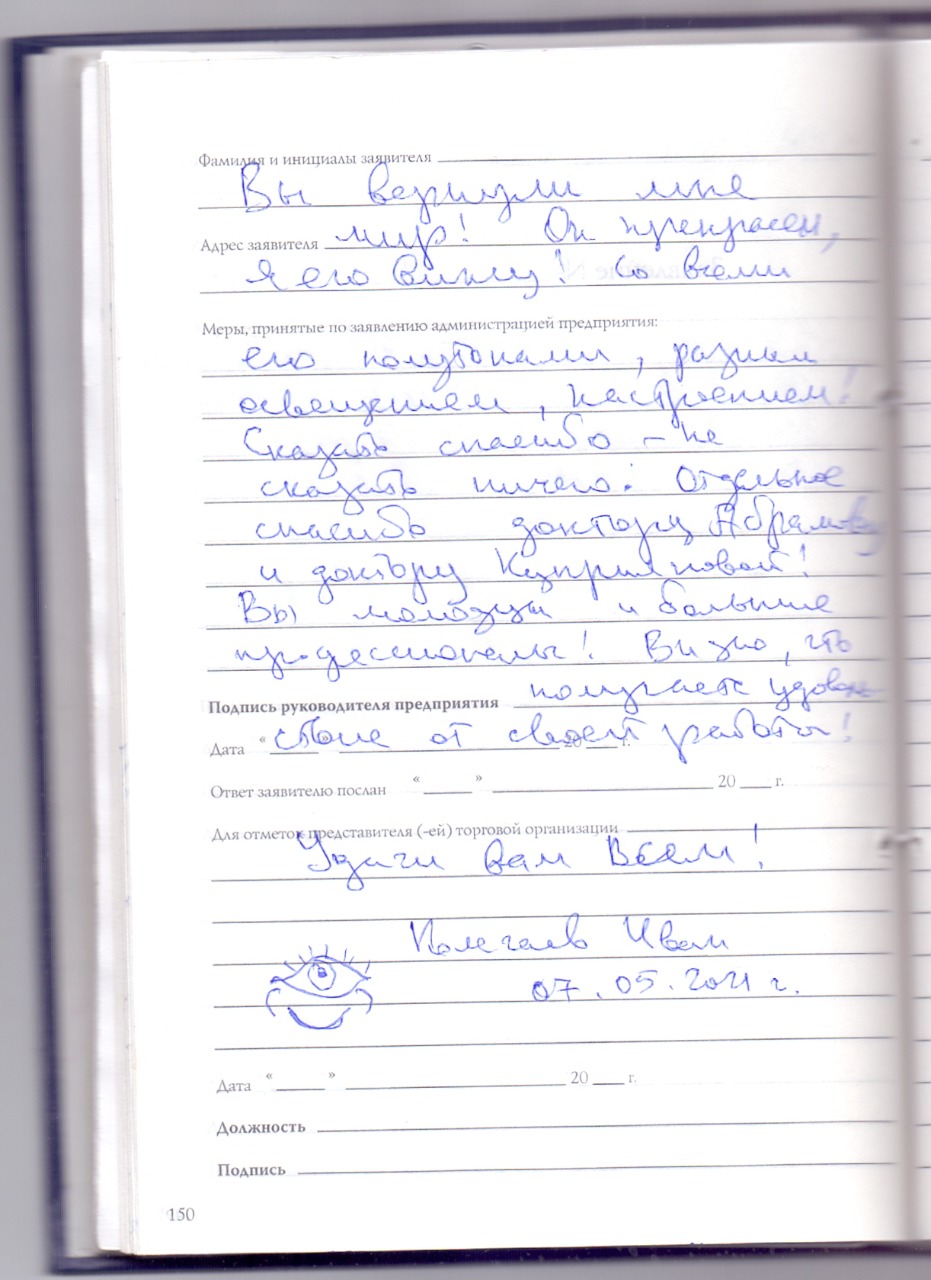 Фамилия и инициалы заявителя
Вы вернули мне
Адрес заявителя мир! Он прекрасен,
я его вижу! Со всеми
Меры, принятые по заявлению администрацией предприятия:
его полутонами, разным
освещением, настроением!
Сказать спасибо – не
сказать ничего! Отдельное
спасибо доктору
и доктору Куприяновой!
Вы молодцы и большие
профессионалы! Видно, что
Подпись руководителя предприятия получаете удоволь-
Дата « » 20 г.
ствие от своей работы!
Ответ заявителю послан « » 20 г.
Для отметок представителя (-ей) торговой организации
Удачи вам всем!
Иван
07.05.2021 г.
Дата « » 20 г.
Должность
Подпись
150